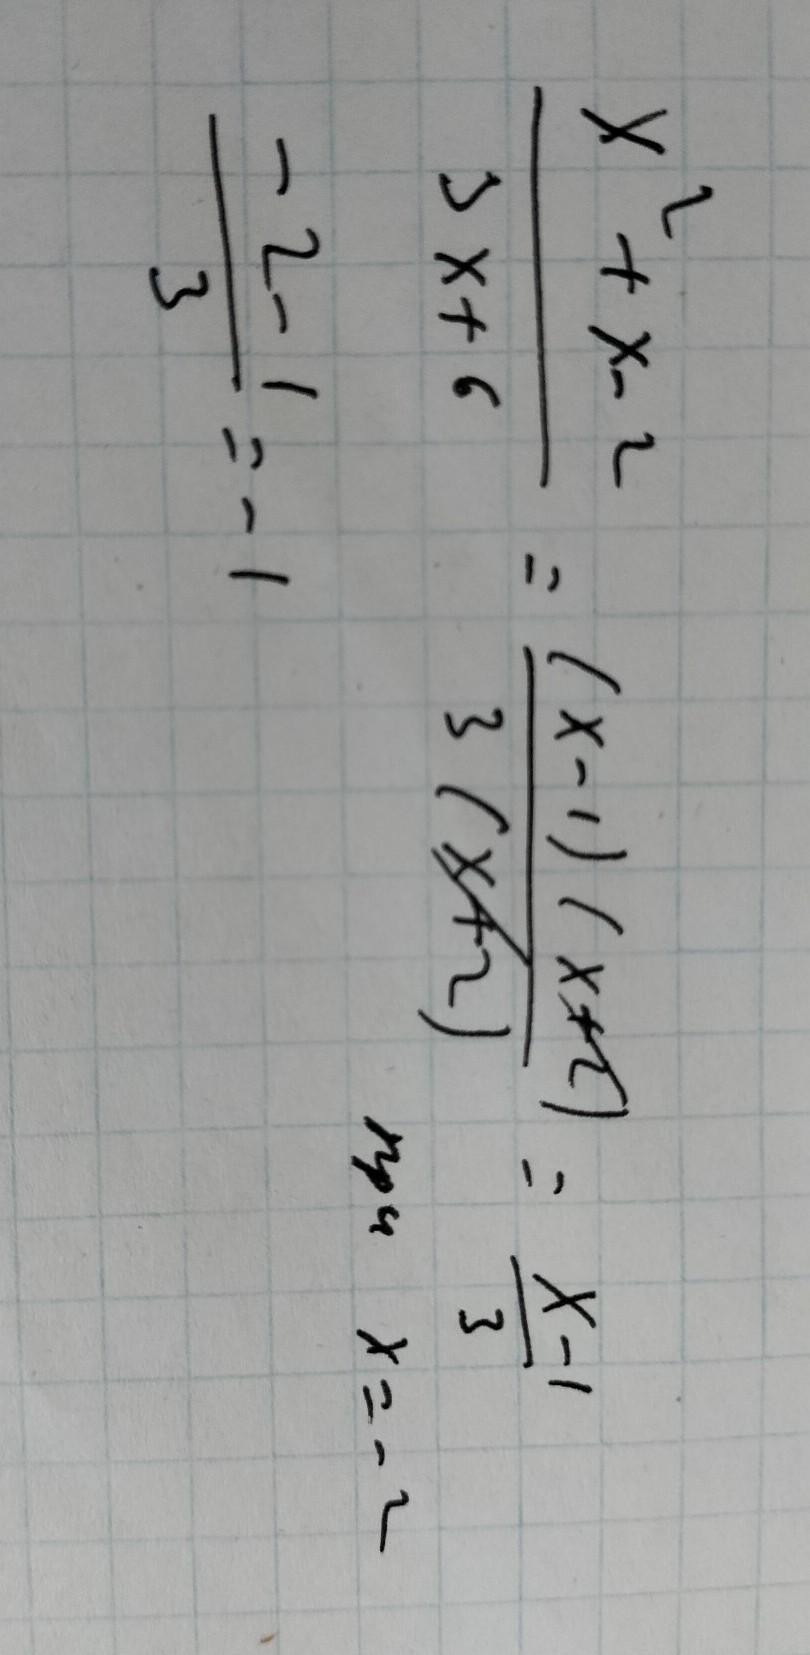 x² + x - 2 / 3x + 6 = (x-1)(x+2) / 3(x+2) = x-1 / 3
при x = -2
-2-1 / 3 = -1